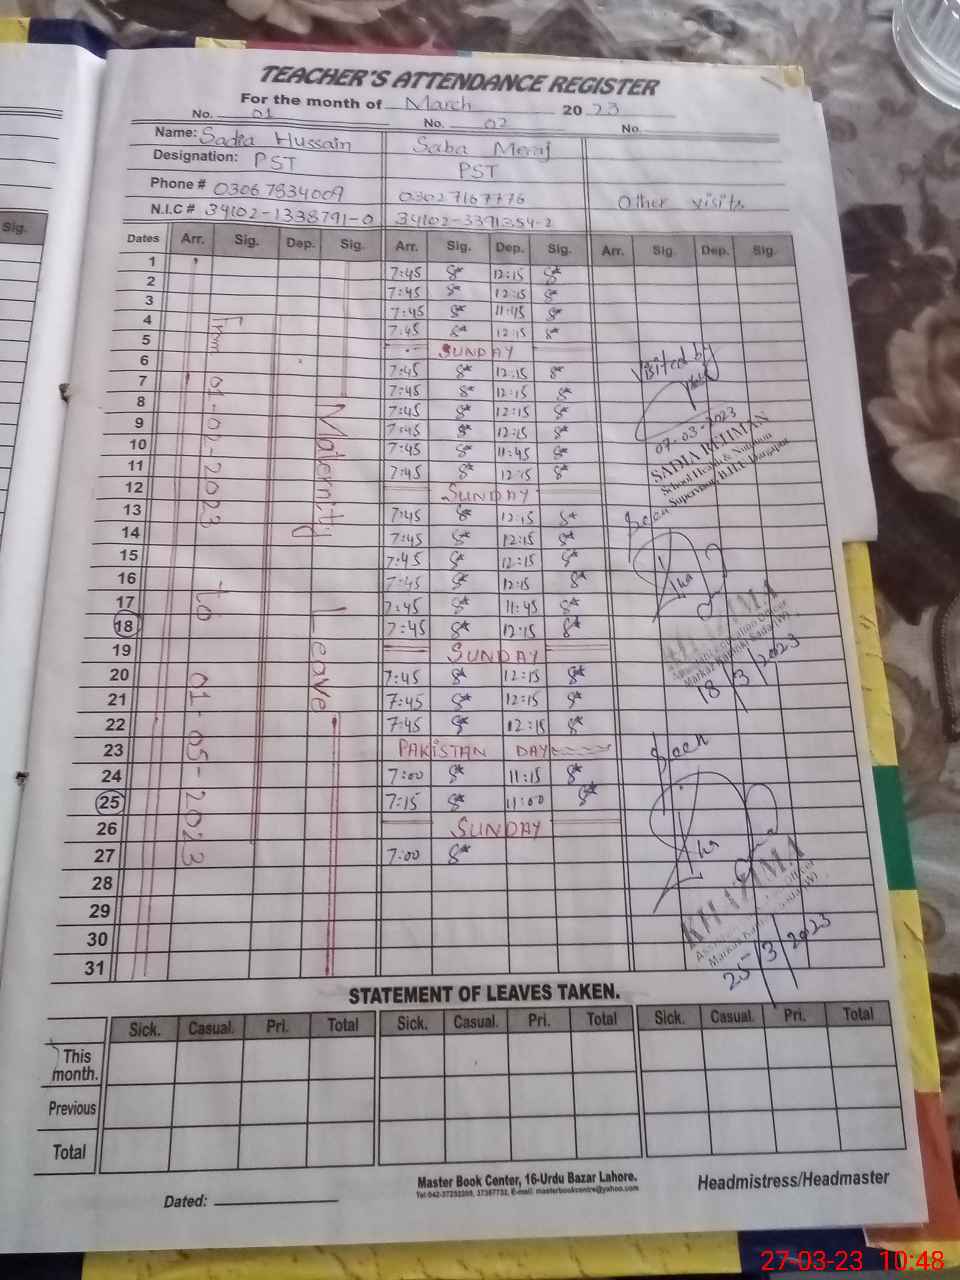 Sig.
TEACHER'S ATTENDANCE REGISTER
For the month of March 2023
No. 01 No. 02 No.
Name: Sadia Hussain Saba Meraj
Designation: PST PST
Phone # 03067834009 03027167776 Other visits
N.I.C # 34102-1338791-0 34102-3391354-2
Dates Arr. Sig. Dep. Sig. Arr. Sig. Dep. Sig. Arr. Sig. Dep. Sig.
From 01-02-2023 to 01-05-2023
Maternity Leave
1 7:45 12:15
2 7:45 12:15
3 7:45 11:45
4 7:45 12:15
5 SUNDAY
6 7:45 12:15
7 7:45 12:15
8 7:45 12:15
9 7:45 12:15
10 7:45 11:45
11 7:45 12:15
12 SUNDAY
13 7:45 12:15
14 7:45 12:15
15 7:45 12:15
16 7:45 12:15
17 7:45 11:45
18 7:45 12:15
19 SUNDAY
20 7:45 12:15
21 7:45 12:15
22 7:45 12:15
23 PAKISTAN DAY
24 7:00 11:15
25 7:15 11:00
26 SUNDAY
27 7:00
28
29
30
31
Visited by
07-03-2023
SADIA REHMAN
School Health & Nutrition
Supervisor, B.H.U
Seen
18/3/2023
Seen
KHAZIMA
25/3/2023
STATEMENT OF LEAVES TAKEN.
Sick. Casual. Pri. Total Sick. Casual. Pri. Total Sick. Casual. Pri. Total
This month.
Previous
Total
Dated:
Master Book Center, 16-Urdu Bazar Lahore.
Headmistress/Headmaster
27-03-23 10:48